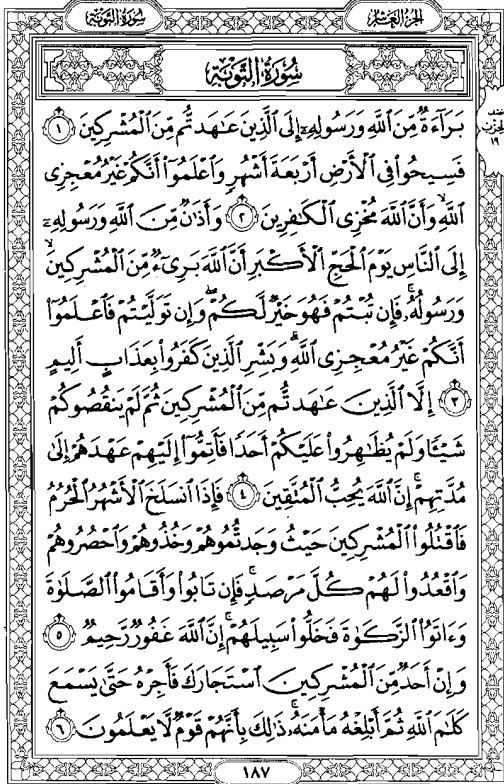 سُورَةُ التَّوْبَةِ
الجُزءُ العَاشِرُ
سُورَةُ التَّوْبَةِ
بَرَآءَةٌ مِّنَ ٱللَّهِ وَرَسُولِهِۦٓ إِلَى ٱلَّذِينَ عَٰهَدتُّم مِّنَ ٱلْمُشْرِكِينَ ١
فَسِيحُوا۟ فِى ٱلْأَرْضِ أَرْبَعَةَ أَشْهُرٍ وَٱعْلَمُوٓا۟ أَنَّكُمْ غَيْرُ مُعْجِزِى
ٱللَّهِ ۙ وَأَنَّ ٱللَّهَ مُخْزِى ٱلْكَٰفِرِينَ ٢ وَأَذَٰنٌ مِّنَ ٱللَّهِ وَرَسُولِهِۦٓ
إِلَى ٱلنَّاسِ يَوْمَ ٱلْحَجِّ ٱلْأَكْبَرِ أَنَّ ٱللَّهَ بَرِىٓءٌ مِّنَ ٱلْمُشْرِكِينَ ۙ
وَرَسُولُهُۥ ۚ فَإِن تُبْتُمْ فَهُوَ خَيْرٌ لَّكُمْ ۖ وَإِن تَوَلَّيْتُمْ فَٱعْلَمُوٓا۟
أَنَّكُمْ غَيْرُ مُعْجِزِى ٱللَّهِ ۗ وَبَشِّرِ ٱلَّذِينَ كَفَرُوا۟ بِعَذَابٍ أَلِيمٍ
٣ إِلَّا ٱلَّذِينَ عَٰهَدتُّم مِّنَ ٱلْمُشْرِكِينَ ثُمَّ لَمْ يَنقُصُوكُمْ
شَيْـًٔا وَلَمْ يُظَٰهِرُوا۟ عَلَيْكُمْ أَحَدًا فَأَتِمُّوٓا۟ إِلَيْهِمْ عَهْدَهُمْ إِلَىٰ
مُدَّتِهِمْ ۚ إِنَّ ٱللَّهَ يُحِبُّ ٱلْمُتَّقِينَ ٤ فَإِذَا ٱنسَلَخَ ٱلْأَشْهُرُ ٱلْحُرُمُ
فَٱقْتُلُوا۟ ٱلْمُشْرِكِينَ حَيْثُ وَجَدتُّمُوهُمْ وَخُذُوهُمْ وَٱحْصُرُوهُمْ
وَٱقْعُدُوا۟ لَهُمْ كُلَّ مَرْصَدٍ ۚ فَإِن تَابُوا۟ وَأَقَامُوا۟ ٱلصَّلَوٰةَ
وَءَاتَوُا۟ ٱلزَّكَوٰةَ فَخَلُّوا۟ سَبِيلَهُمْ ۚ إِنَّ ٱللَّهَ غَفُورٌ رَّحِيمٌ ٥
وَإِنْ أَحَدٌ مِّنَ ٱلْمُشْرِكِينَ ٱسْتَجَارَكَ فَأَجِرْهُ حَتَّىٰ يَسْمَعَ
كَلَٰمَ ٱللَّهِ ثُمَّ أَبْلِغْهُ مَأْمَنَهُۥ ۚ ذَٰلِكَ بِأَنَّهُمْ قَوْمٌ لَّا يَعْلَمُونَ ٦
الحِزْب
١٩
١٨٧